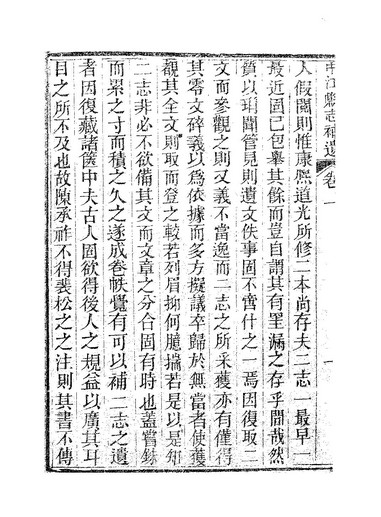 中江縣志補遺 卷一 一
人假閱則惟康熙道光所修二本尚存夫二志一最早一
最近固已包舉其餘而豈自謂其有罣漏之存乎間哉然
質以瑣聞管見則遺文佚事固不啻什之一焉因復取二
文而參觀之則又義不當逸而二志之所采獲亦有僅得
其零文碎義以爲依據而多方擬議卒歸於無當者使獲
覩其全文則取而登之較若列眉抑何臆揣若是以是知
二志非必不欲備其文而文章之分合固有時也蓋嘗銖
而累之寸而積之久之遂成卷帙覺有可以補二志之遺
者因復藏諸篋中夫古人固欲得後人之規益以廣其耳
目之所不及也故陳承祚不得裴松之之注則其書不傳